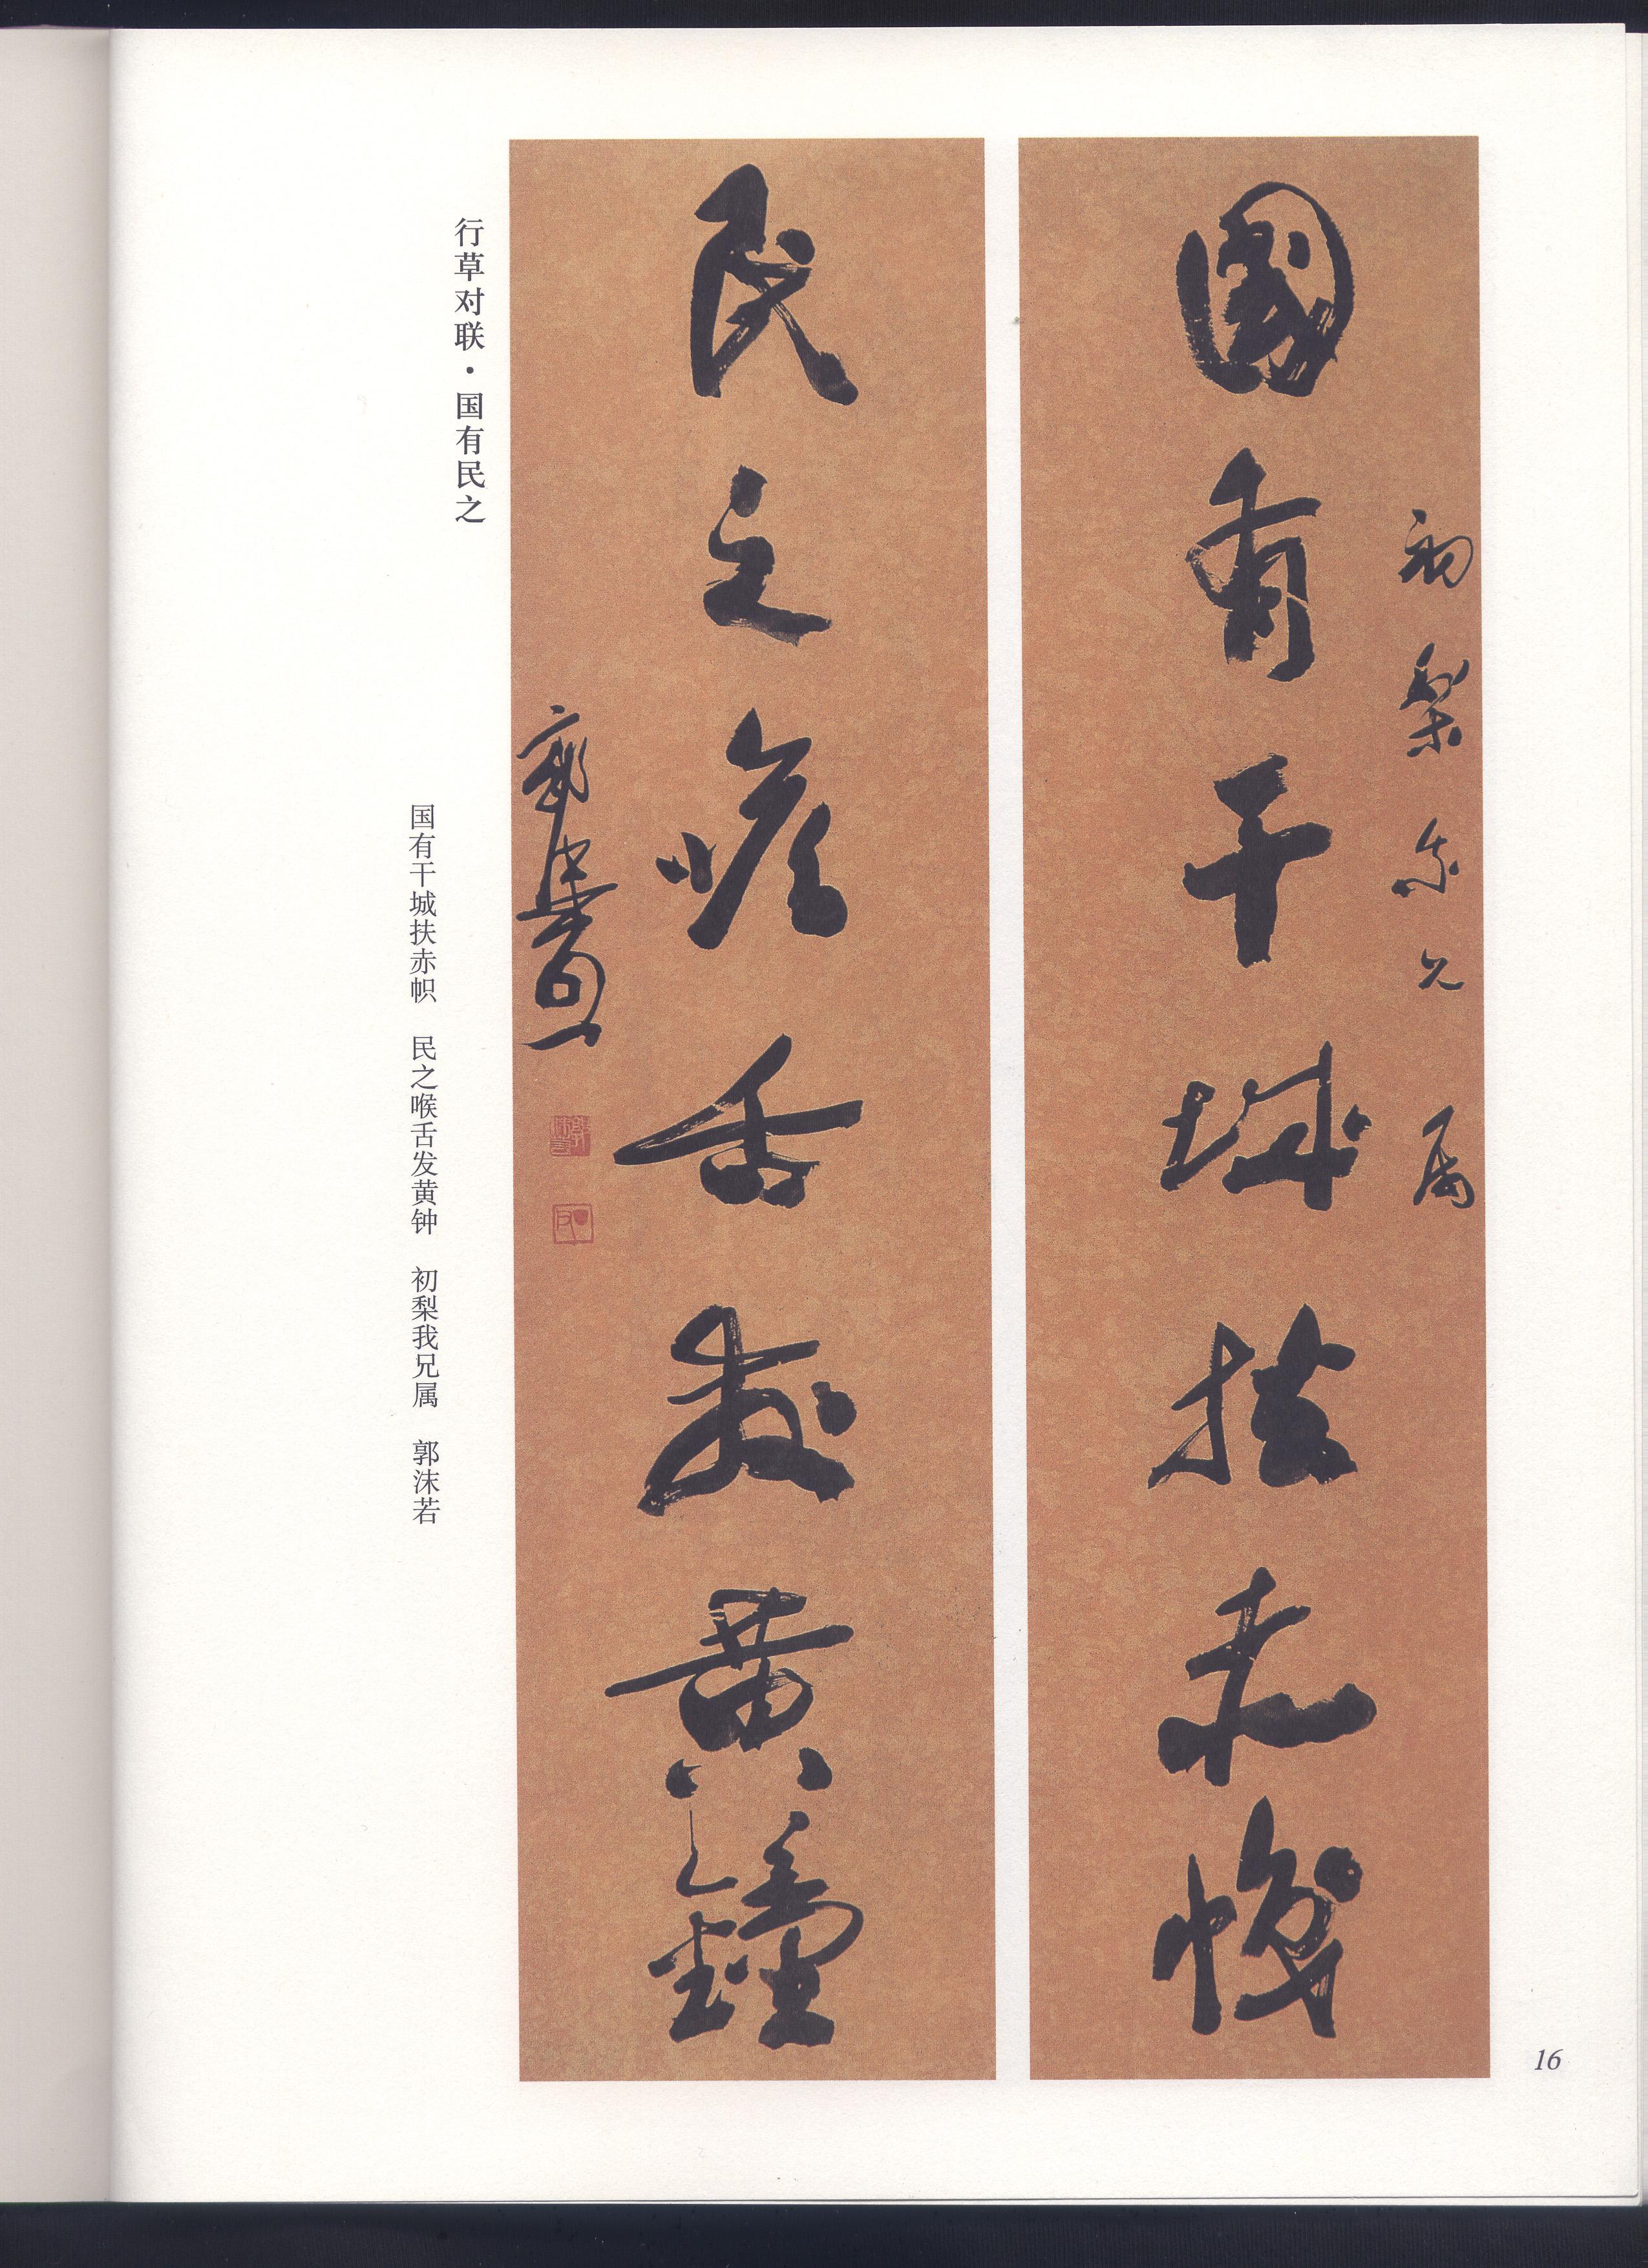 初梨我兄属
國有干城扶赤幟
民之喉舌發黃鐘
郭沫若
行草对联·国有民之
国有干城扶赤帜 民之喉舌发黄钟 初梨我兄属 郭沫若
16